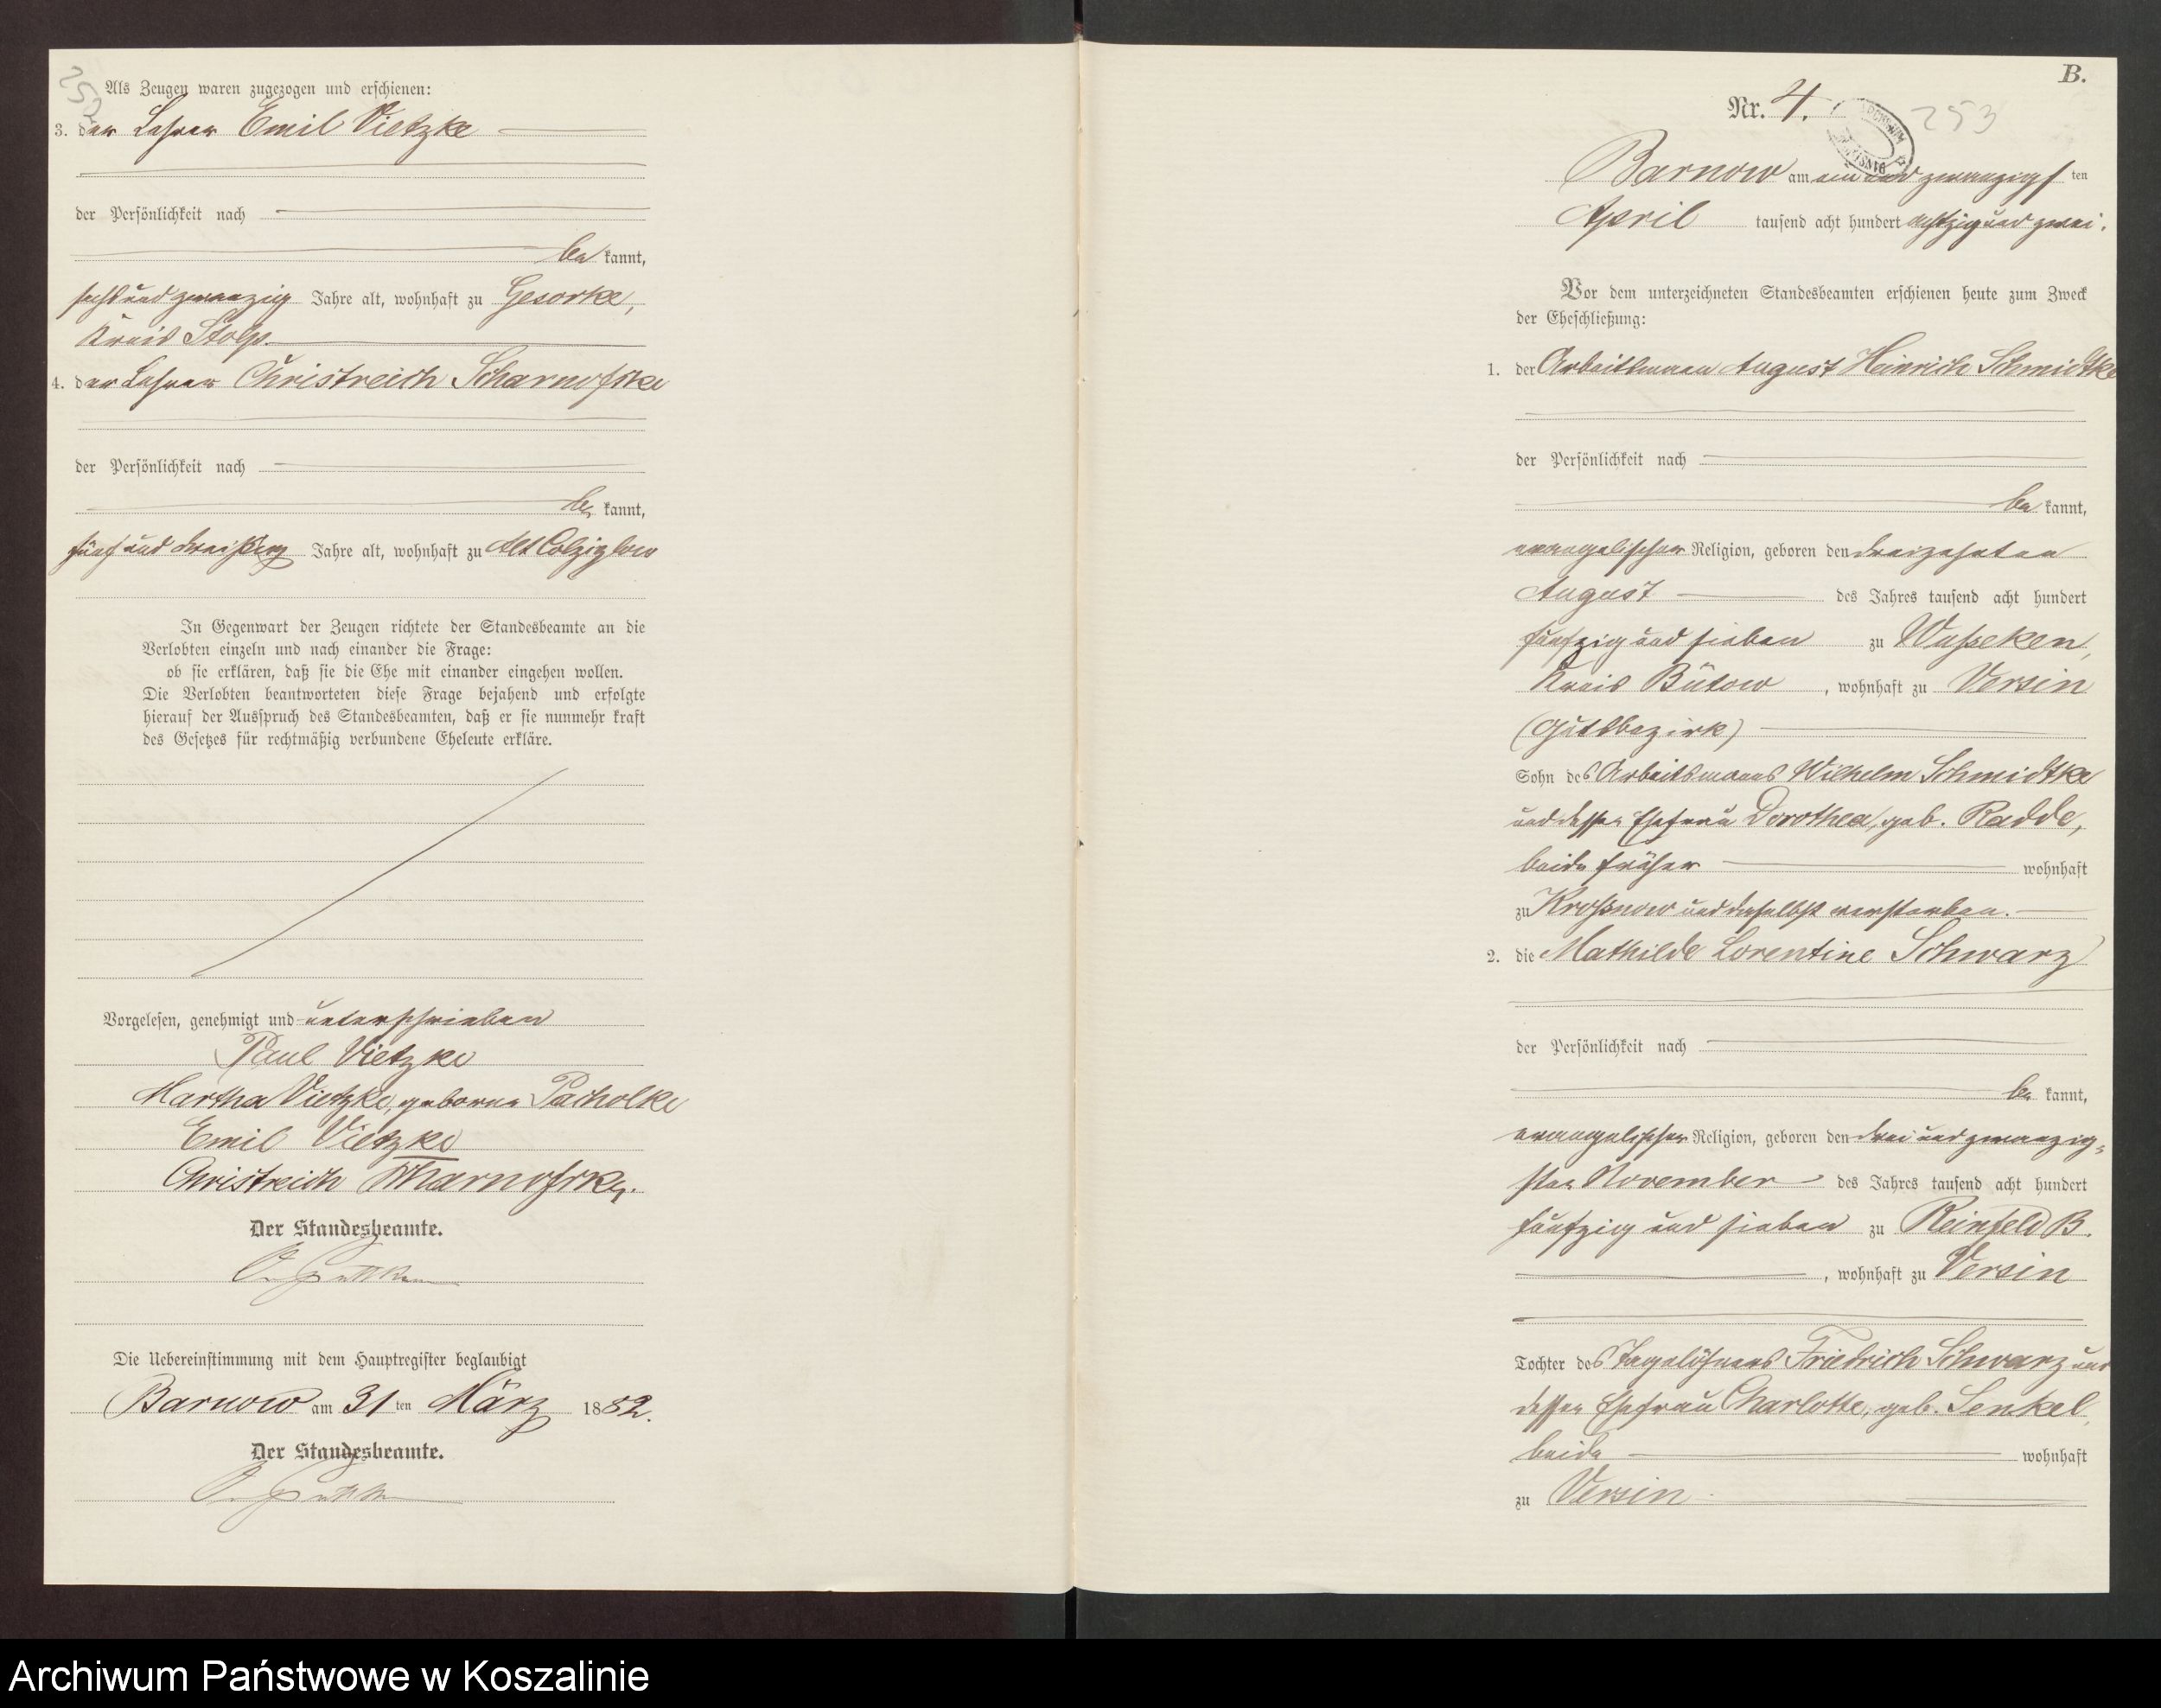 252
Als Zeugen waren zugezogen und erschienen:
3. der Lehrer Emil Vietzke
der Persönlichkeit nach
be kannt,
sechsundzwanzig Jahre alt, wohnhaft zu Gesorke,
Kreis Stolp.
4. der Lehrer Christreich Scharnofske
der Persönlichkeit nach
be kannt,
fünfunddreißig Jahre alt, wohnhaft zu Alt Colziglow
In Gegenwart der Zeugen richtete der Standesbeamte an die
Verlobten einzeln und nach einander die Frage:
ob sie erklären, daß sie die Ehe mit einander eingehen wollen.
Die Verlobten beantworteten diese Frage bejahend und erfolgte
hierauf der Ausspruch des Standesbeamten, daß er sie nunmehr kraft
des Gesetzes für rechtmäßig verbundene Eheleute erkläre.
Vorgelesen, genehmigt und unterschrieben
Paul Vietzke
Martha Vietzke, geborne Pacholke
Emil Vietzke
Christreich Scharnofske.
Der Standesbeamte.
Die Uebereinstimmung mit dem Hauptregister beglaubigt
Barnow am 31 ten März 1882.
Der Standesbeamte.
B.
Nr. 4.
253
Barnow am ein und zwanzigs ten
April tausend acht hundert achtzig und zwei.
Vor dem unterzeichneten Standesbeamten erschienen heute zum Zweck
der Eheschließung:
1. der Arbeitsmann August Heinrich Schmidtke
der Persönlichkeit nach
be kannt,
evangelischer Religion, geboren den dreizehnten
August des Jahres tausend acht hundert
fünfzig und sieben zu Wusseken,
Kreis Bütow, wohnhaft zu Versin
(Gutsbezirk)
Sohn des Arbeitsmanns Wilhelm Schmidtke
und dessen Ehefrau Dorothea, geb. Radde,
beide früher wohnhaft
zu Krossnow und daselbst verstorben.
2. die Mathilde Lorentine Schwarz
der Persönlichkeit nach
be kannt,
evangelischer Religion, geboren den drei und zwanzig-
sten November des Jahres tausend acht hundert
fünfzig und sieben zu Reinfeld B.
, wohnhaft zu Versin
Tochter des Tagelöhners Friedrich Schwarz und
dessen Ehefrau Charlotte, geb. Senkel,
beide wohnhaft
zu Versin.
Archiwum Państwowe w Koszalinie